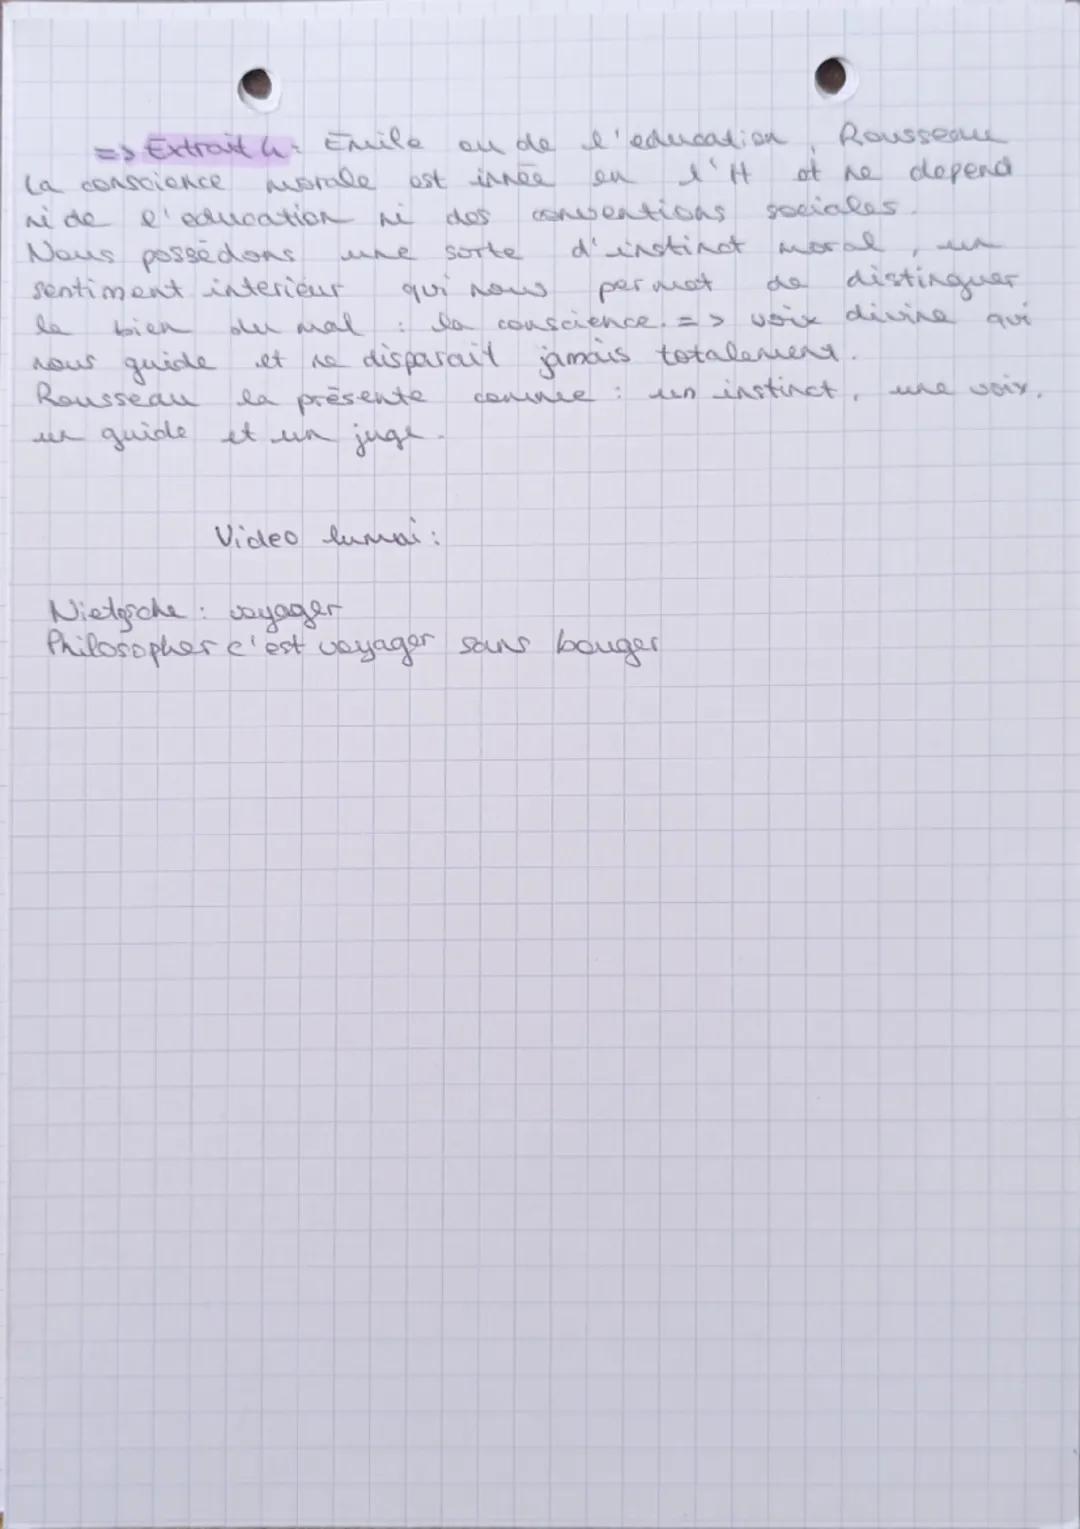 => Extrait 4 : Emile ou de l'education, Rousseau
La conscience morale est innée en l'H et ne depend
ni de l'education ni des conventions sociales.
Nous possédons une sorte d'instinct moral, un
sentiment interieur qui nous permet de distinguer
le bien du mal : la conscience. => voix divine qui
nous guide et ne disparait jamais totalement.
Rousseau la présente comme : un instinct, une voix,
un guide et un juge.
Video lumni :
Nietzsche : voyager
Philosopher c'est voyager sans bouger